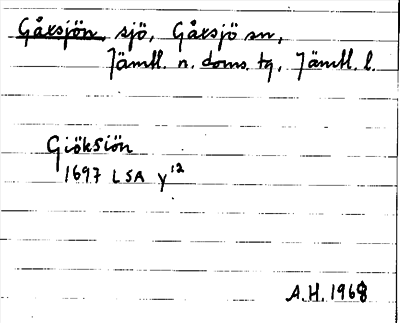 Gåxsjön, sjö, Gåxsjö sn,
Jämtl. n. doms. tg, Jämtl. l.
Giöksiön
1697 LSA Y¹²
A.H. 1968